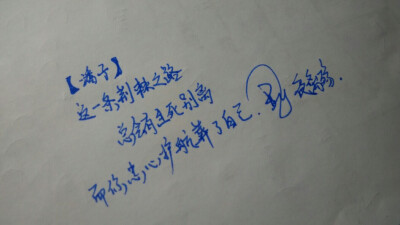 【瑞于】
这一条荆棘之路
总会有生死别离
而你,忠心护航葬了自己.